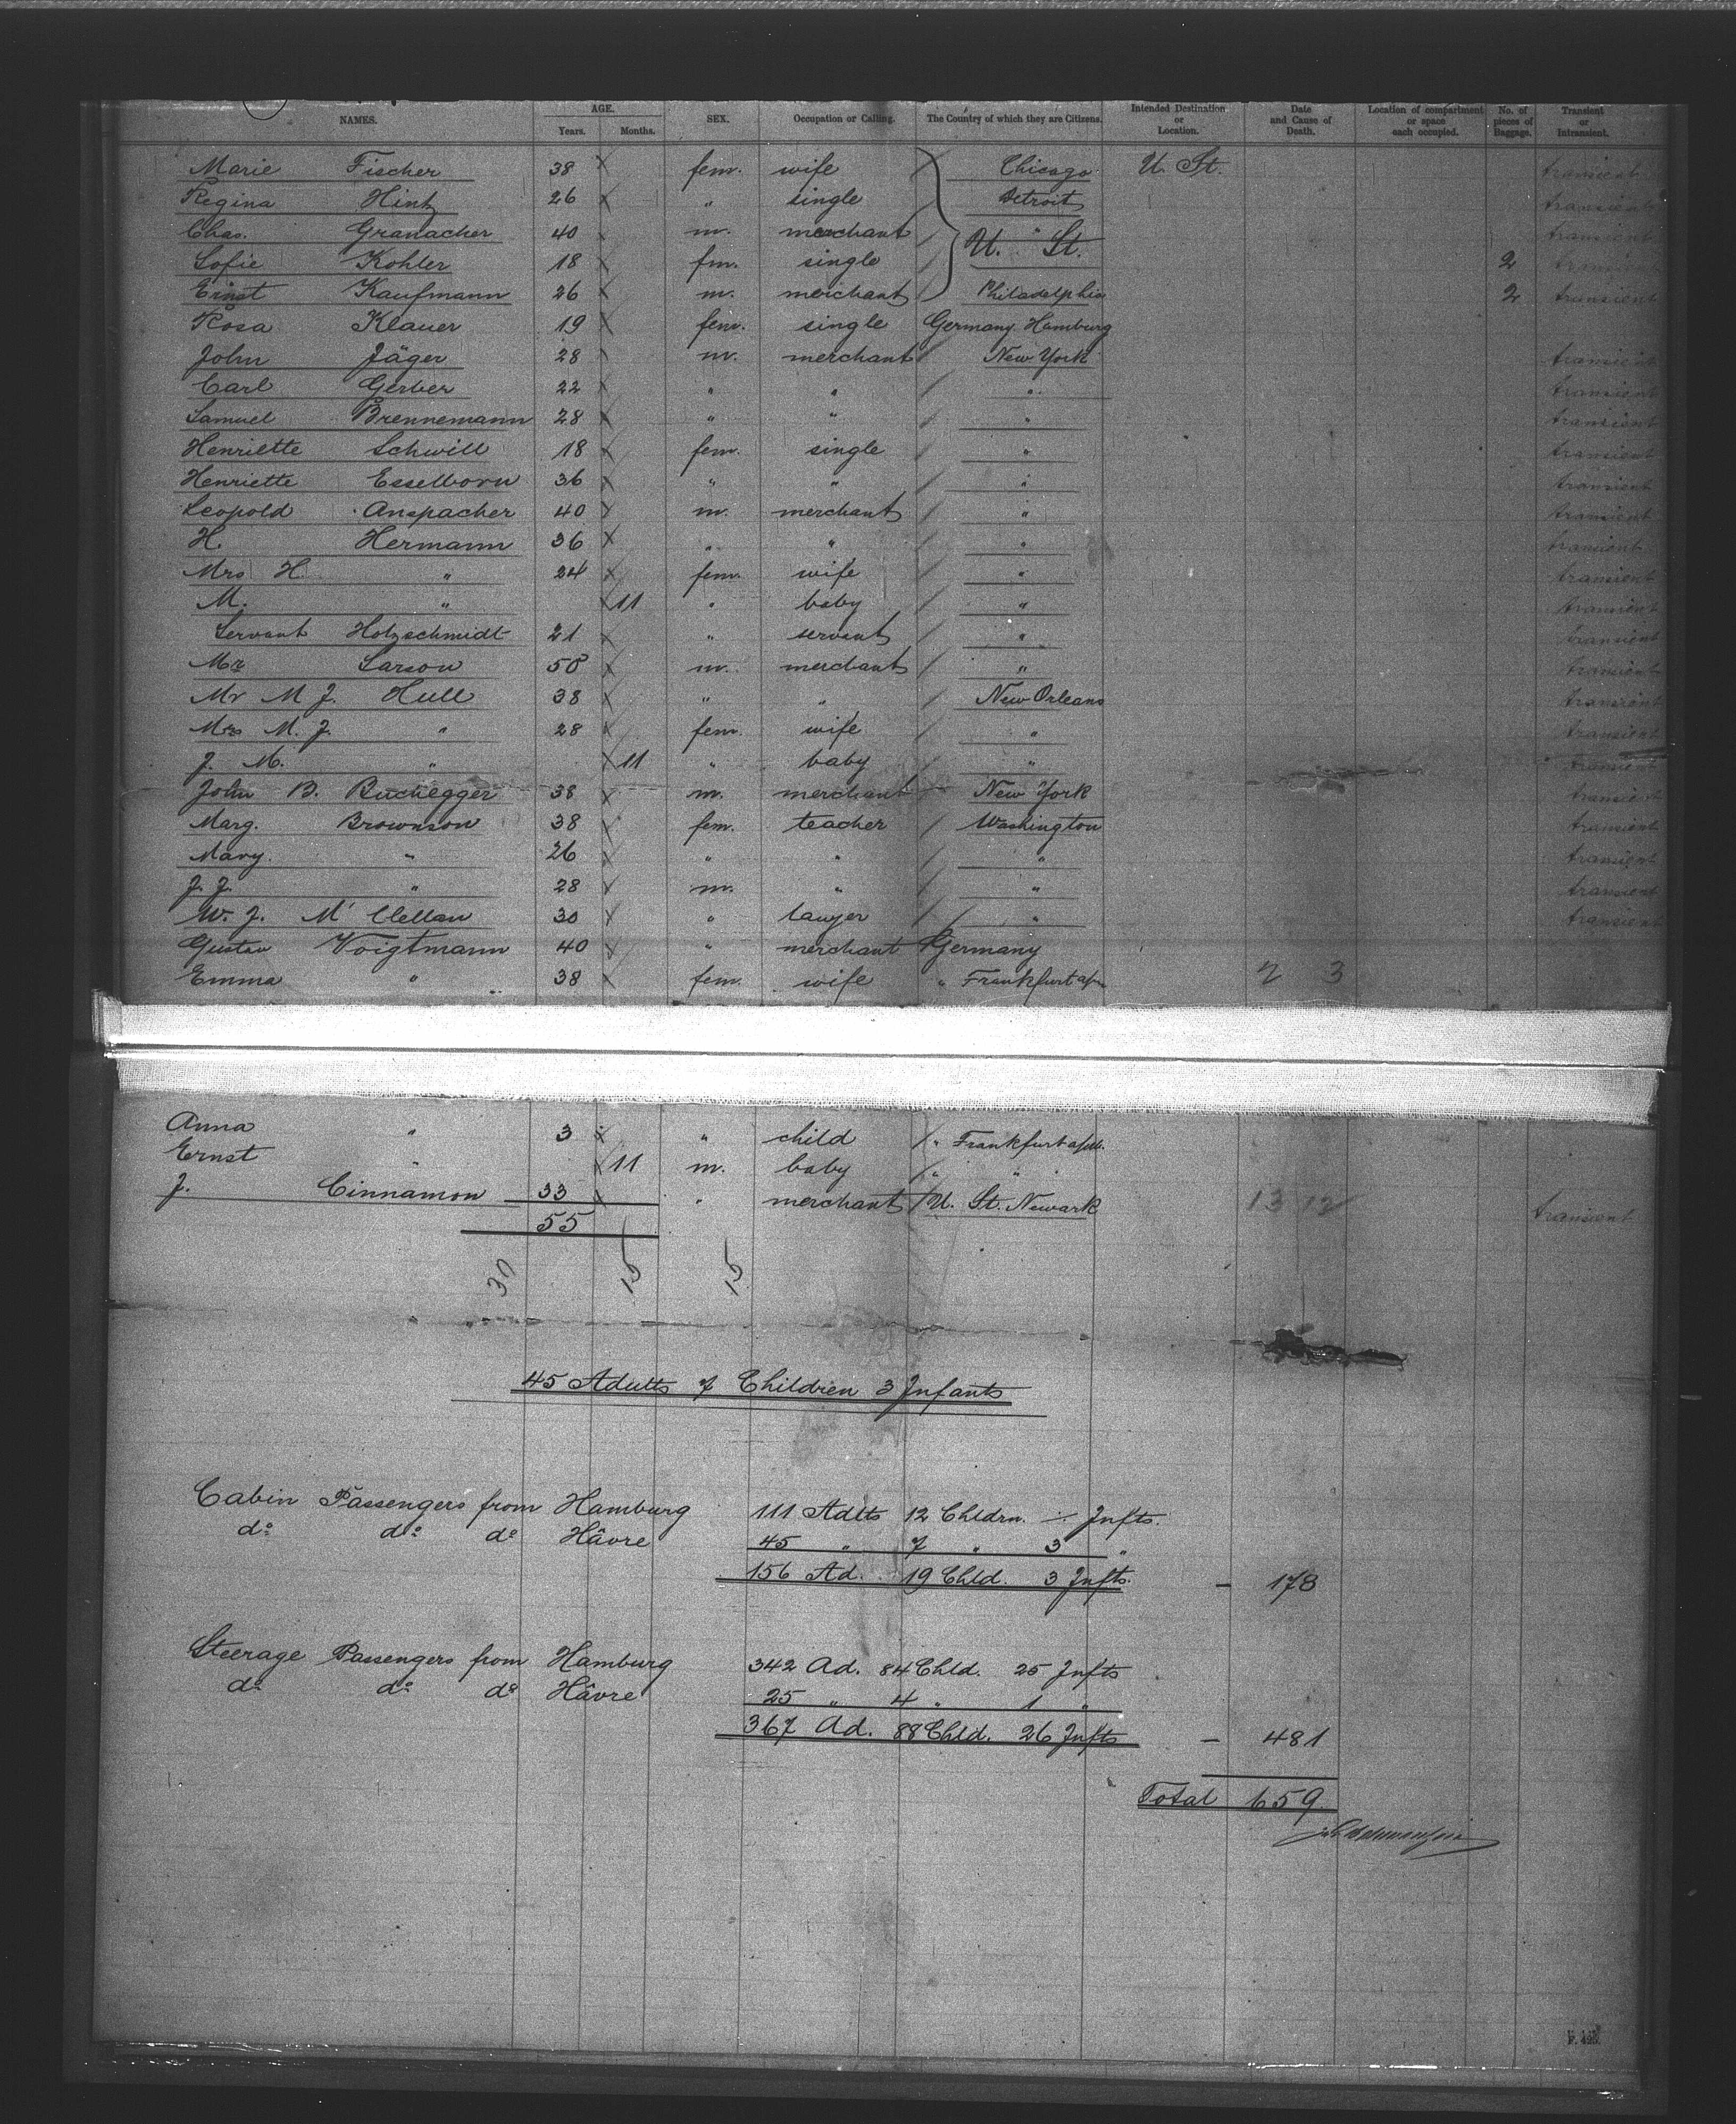 NAMES. AGE. Years. Months. SEX. Occupation or Calling. The Country of which they are Citizens. Intended Destination or Location. Date and Cause of Death. Location of compartment or space each occupied. No. of pieces of Baggage. Transient or Intransient.
Marie Fischer 38 fem. wife Chicago U. St. transient
Regina Hintz 26 " single Detroit transient
Chas. Granacher 40 m. merchant " transient
Sofie Kohler 18 fm. single U. St. 2 transient
Ernst Kaufmann 26 m. merchant Philadelphia 2 transient
Rosa Klauer 19 fem. single Germany Hamburg
John Jäger 28 m. merchant New York transient
Carl Gerber 22 " " " transient
Samuel Brennemann 28 " " " transient
Henriette Schwill 18 fem. single " transient
Henriette Esselborn 36 " " " transient
Leopold Anspacher 40 m. merchant " transient
H. Hermann 36 " " " transient
Mrs H. " 24 fem. wife " transient
M. " 11 " baby " transient
Servant Holzschmidt 21 " servant " transient
Mr Larson 50 m. merchant " transient
Mr M J. Hull 38 " " New Orleans transient
Mrs M. J. " 28 fem. wife " transient
J. M. " 11 " baby " transient
John B. Buchegger 38 m. merchant New York transient
Marg. Brownson 38 fem. teacher Washington transient
Mary. " 26 " " " transient
J. J. " 28 m. " " transient
W. J. Mc Clellan 30 " lawyer " transient
Gustav Voigtmann 40 " merchant Germany
Emma " 38 fem. wife " Frankfurt a/m 2 3
Anna " 3 " child " Frankfurt a/M.
Ernst " 11 m. baby " "
J. Cinnamon 33 " merchant U. St. Newark 13 12 transient
55
30 15 15
45 Adults 7 Children 3 Infants
Cabin Passengers from Hamburg 111 Adlts 12 Chldrn. ÷ Infts.
do do do Hâvre 45 " 7 " 3 "
156 Ad. 19 Chld. 3 Infts. - 178
Steerage Passengers from Hamburg 342 Ad. 84 Chld. 25 Infts
do do do Hâvre 25 " 4 " 1 "
367 Ad. 88 Chld. 26 Infts - 481
Total 659.